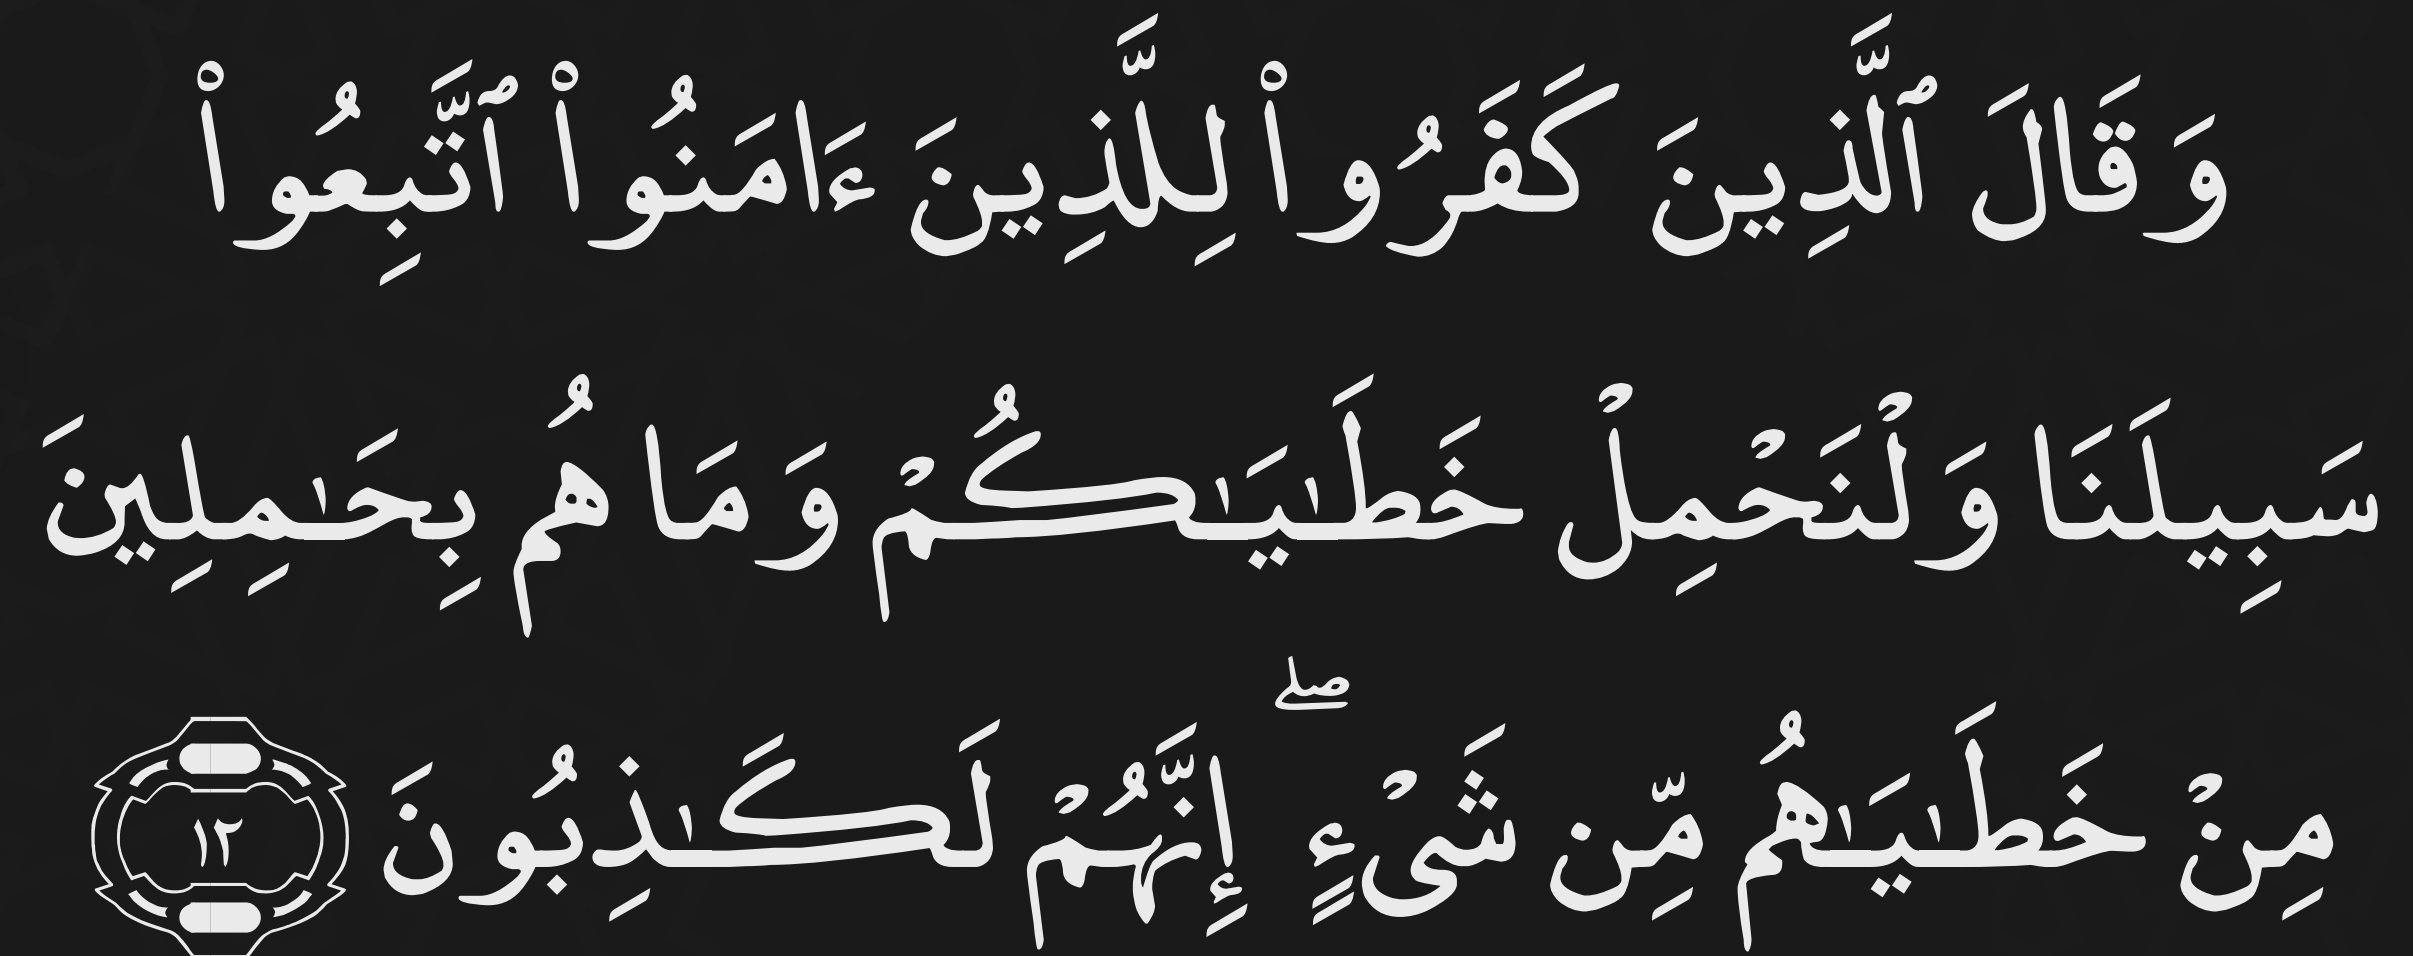 وَقَالَ ٱلَّذِينَ كَفَرُوا۟ لِلَّذِينَ ءَامَنُوا۟ ٱتَّبِعُوا۟
سَبِيلَنَا وَلْنَحْمِلْ خَطَـٰيَـٰكُمْ وَمَا هُم بِحَـٰمِلِينَ
مِنْ خَطَـٰيَـٰهُم مِّن شَىْءٍ ۖ إِنَّهُمْ لَكَـٰذِبُونَ ١٢